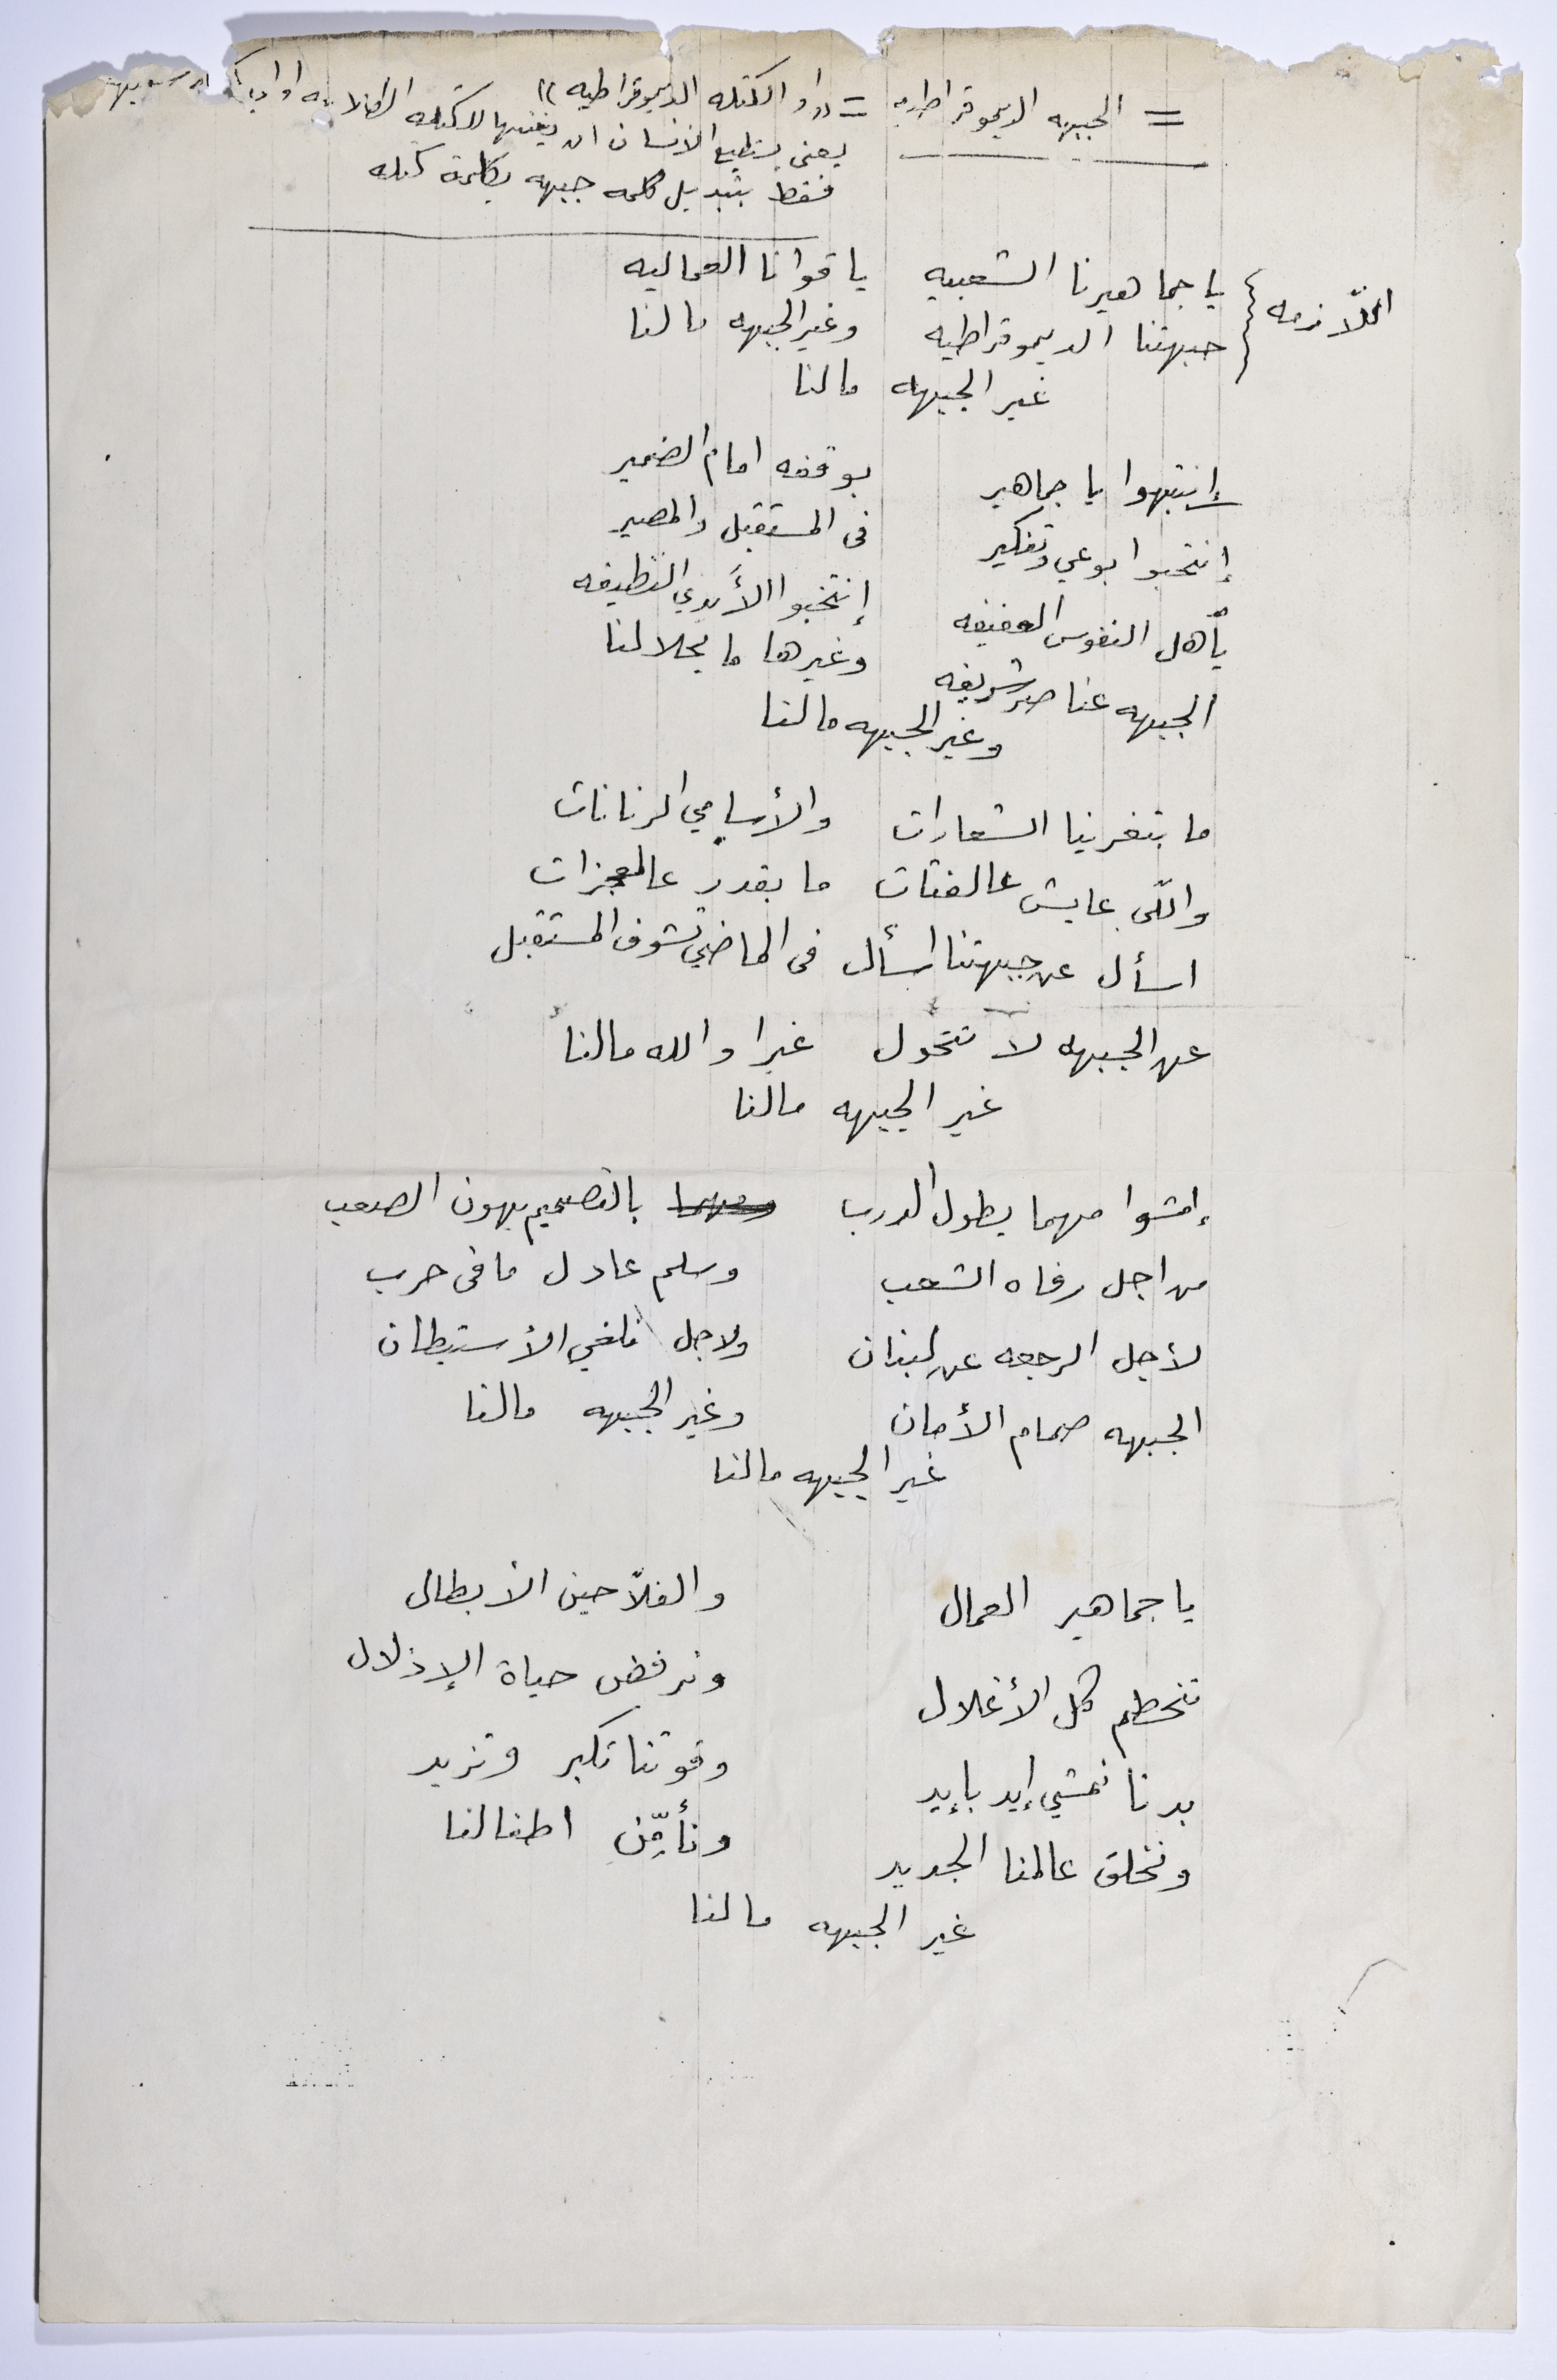 = الجبهه الديموقراطيه = «او الكتله الديموقراطيه»
يعني يستطيع الانسان ان يغنيها للكتله الطلابيه او
فقط بتبديل كلمه جبهه بكلمة كتله
اللّازمه { يا جماهيرنا الشعبيه يا قوانا العماليه
جبهتنا الديموقراطيه وغير الجبهه مالنا
غير الجبهه مالنا
إنتبهوا يا جماهير بوقفه امام الضمير
إنتخبوا بوعي وتفكير في المستقبل والمصير
يآهل النفوس العفيفه إنتخبوا الأَيدي النظيفه
الجبهه عناصر شريفه وغيرها ما يحلالنا
وغير الجبهه مالنا
ما بتغرينا الشعارات والأسامي الرنانات
واللّي عايش عالفتات ما بقدر عالمعجزات
اسأل عن جبهتنا اسأل في الماضي تشوف المستقبل
عن الجبهه لا تتحول غيرا والله مالنا
غير الجبهه مالنا
إمشوا مهما يطول الدرب بالتصميم بهون الصعب
من اجل رفاه الشعب وسلم عادل ما في حرب
لأجل الرجعه عن لبنان ولاجل نلغي الأستيطان
الجبهه صمام الأمان وغير الجبهه مالنا
غير الجبهه مالنا
يا جماهير العمال والفلّاحين الأبطال
تنحطم كل الأغلال ونرفض حياة الإذلال
بدنا نمشي إيد بإيد وقوتنا تكبر وتزيد
ونخلق عالمنا الجديد ونأمِّن اطفالنا
غير الجبهه مالنا